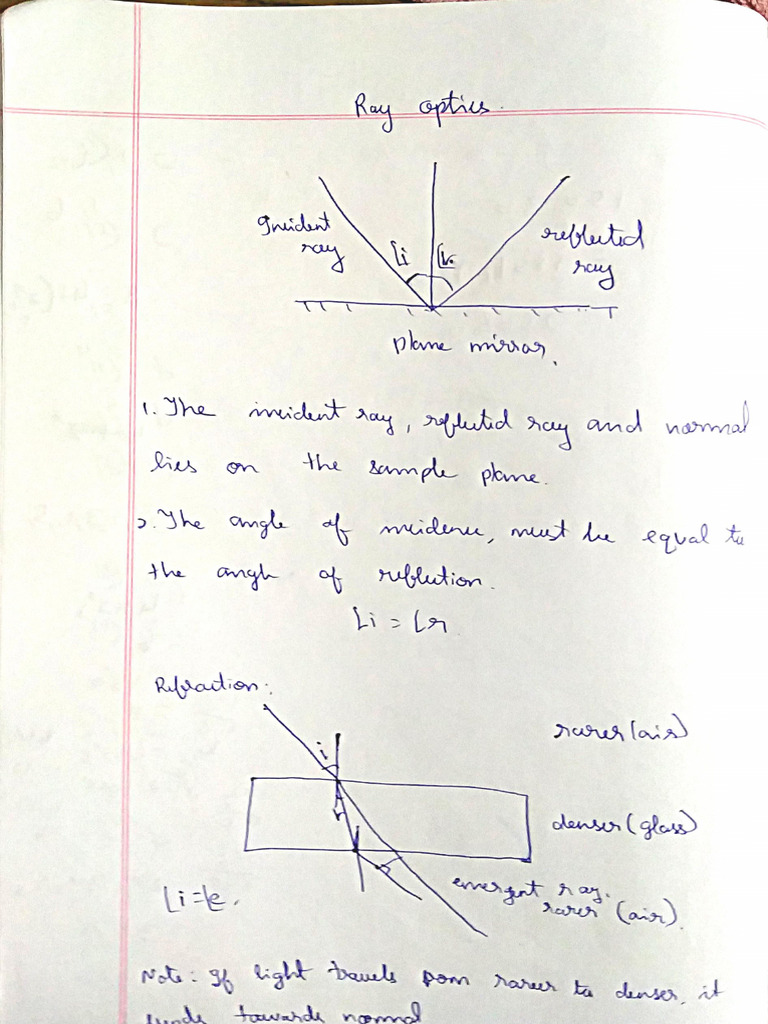 Ray optics.
Incident
ray
∠i
∠r
reflected
ray
plane mirror.
1. The incident ray, reflected ray and normal
lies on the sample plane.
2. The angle of incidence, must be equal to
the angle of reflection.
∠i = ∠r
Refraction:
rarer (air)
i
r
denser (glass)
emergent ray.
rarer (air).
∠i = ∠e.
Note: If light travels from rarer to denser, it
bends towards normal